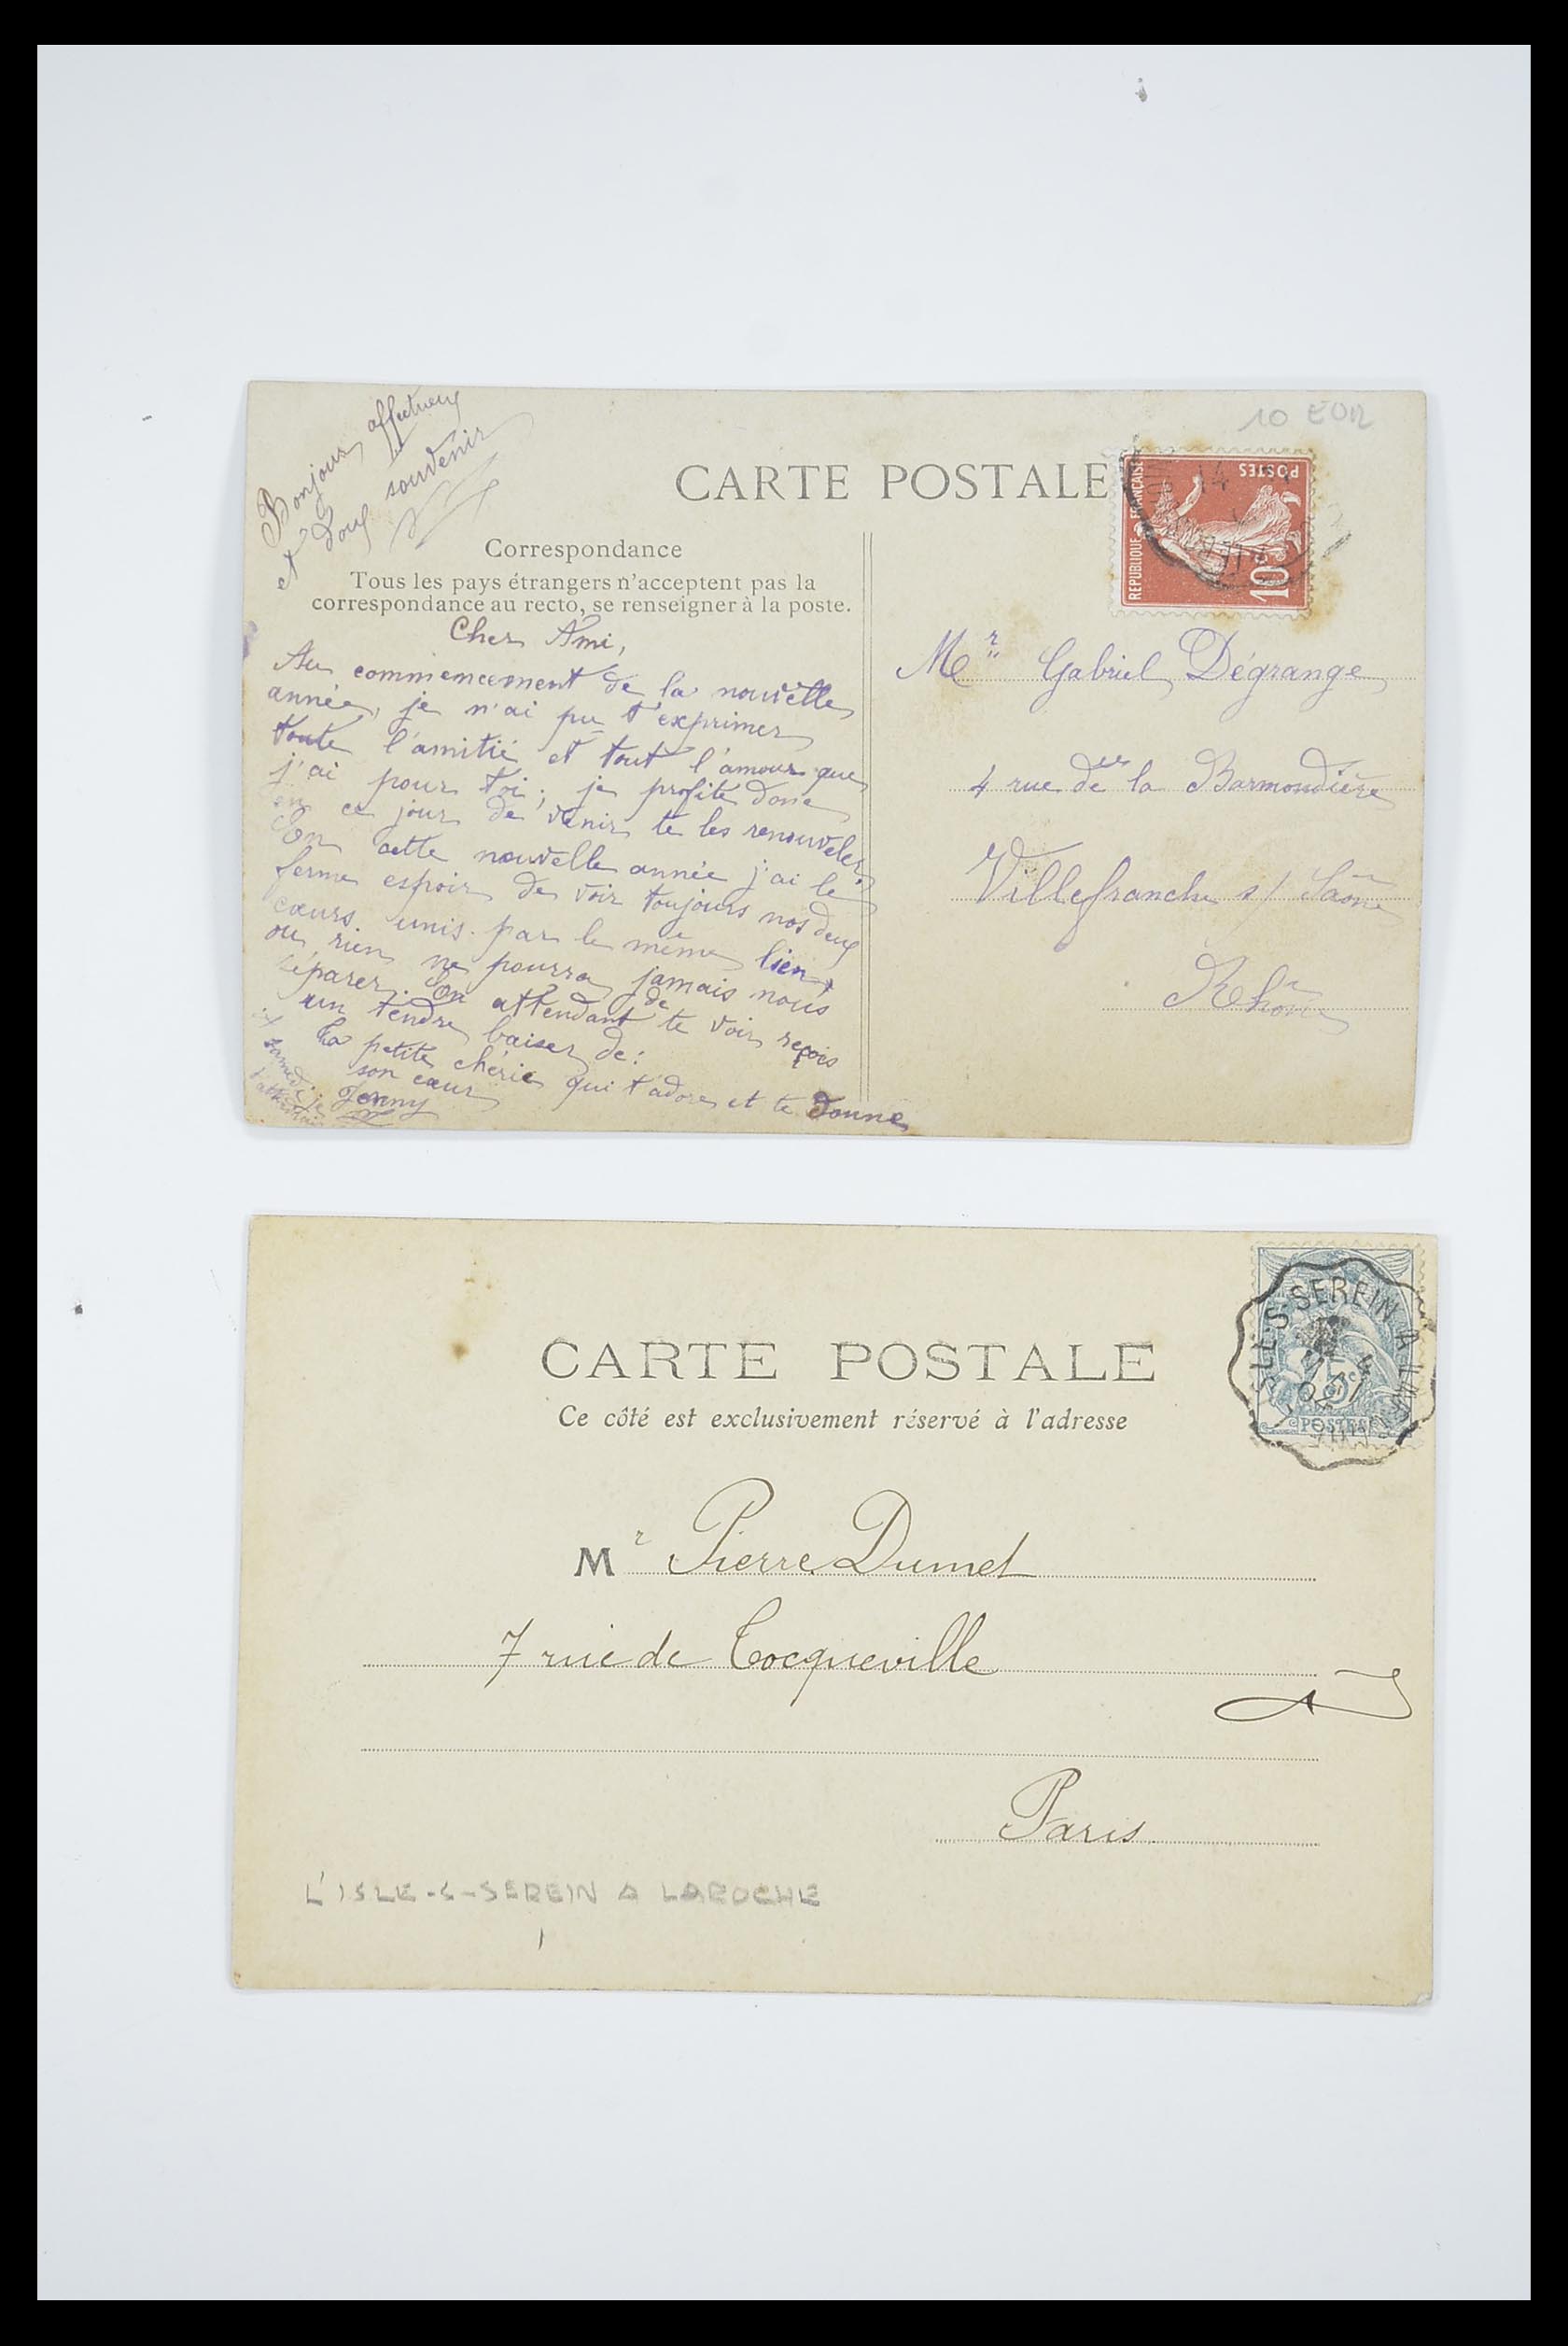 10 EUR
Bonjour affectueux
et doux souvenir
CARTE POSTALE
POSTES
REPUBLIQUE FRANÇAISE
10c
Correspondance
Tous les pays étrangers n'acceptent pas la
correspondance au recto, se renseigner à la poste.
Cher Ami,
Au commencement de la nouvelle
année, je n'ai pu t'exprimer
toute l'amitié et tout l'amour que
j'ai pour toi; je profite donc
en ce jour de venir te les renouveler.
En cette nouvelle année j'ai le
ferme espoir de voir toujours nos deux
cœurs unis par le même lien,
ou rien ne pourra jamais nous
séparer. En attendant de te voir reçois
un tendre baiser de:
Ta petite chérie qui t'adore et te donne
son cœur
Jenny
samedi je
Mr Gabriel Dégrange
4 rue de la Barmondière
Villefranche s/ Saône
Rhône
CARTE POSTALE
Ce côté est exclusivement réservé à l'adresse
L'ISLE-S-SEREIN A LA
5c
POSTES
Mr Pierre Dumet
7 rue de Tocqueville
Paris
L'ISLE-S-SEREIN A LAROCHE